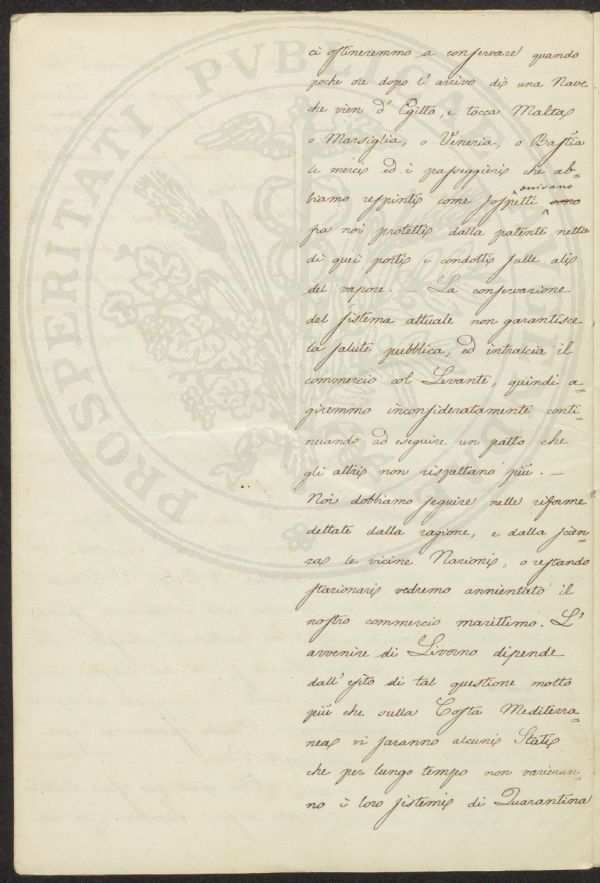 ci ostineremmo a conservare quando
poche ore dopo l' arrivo di una Nave
che vien d' Egitto, e tocca Malta
o Marsiglia, o Venezia, o Bastia
le merci ed i passeggieri che ab=
biamo respinti come sospetti arrivano
fra noi protetti dalla patente netta
di quei porti e condotti sulle ali
del vapore. — La conservazione
del sistema attuale non garantisce
la salute pubblica, ed intralcia il
commercio col Levante, quindi a=
giremmo inconsideratamente conti=
nuando ad eseguire un patto che
gli altri non rispettano più. —
Noi dobbiamo seguire nelle riforme
dettate dalla ragione, e dalla scien=
za le vicine Nazioni, o restando
stazionari vedremo annientato il
nostro commercio marittimo. L'
avvenire di Livorno dipende
dall' esito di tal questione molto
più che sulla Costa Mediterra=
nea vi saranno alcuni Stati
che per lungo tempo non varieran=
no i loro sistemi di Quarantina
PROSPERITATI PVBLICAE